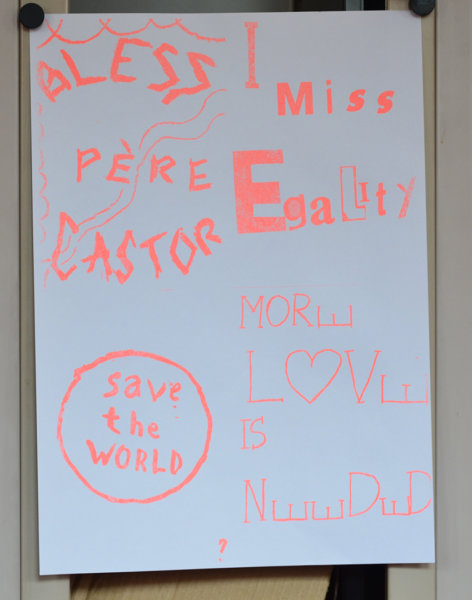 BLESS
PÈRE
CASTOR
I
Miss
EgaLity
save
the
WORLD
MORE
L♡VE
IS
NEEDED
?